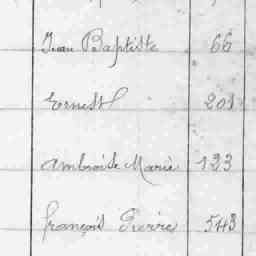 Jean Baptiste 66
Ernest 201
Ambroise Marie 123
françois Pierre 543